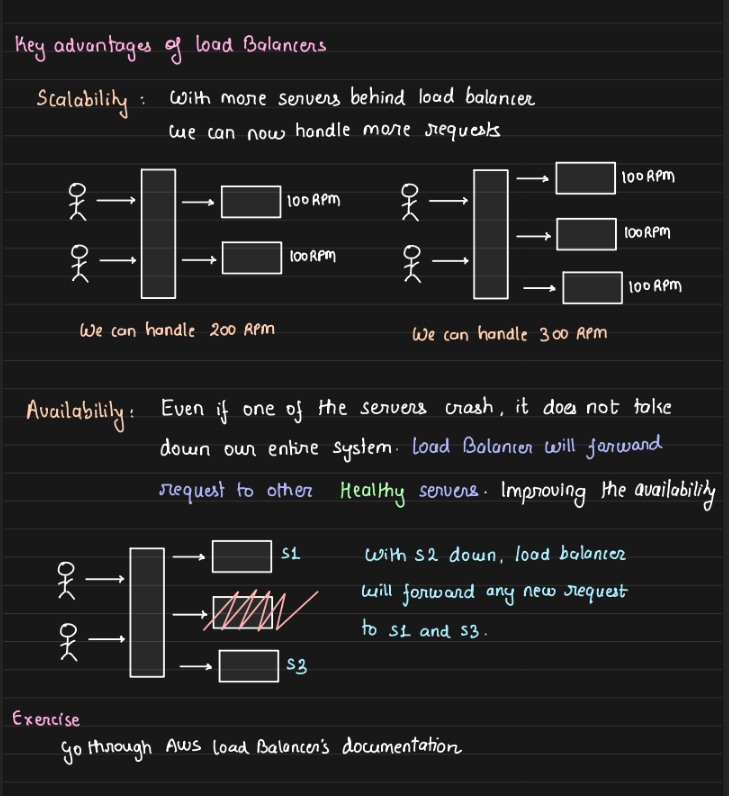 Key advantages of Load Balancers
Scalability : With more servers behind load balancer
we can now handle more requests
100 RPM
100 RPM
We can handle 200 RPM
100 RPM
100 RPM
100 RPM
We can handle 300 RPM
Availability : Even if one of the servers crash, it does not take
down our entire system. Load Balancer will forward
request to other Healthy servers. Improving the availability
S1
S3
With S2 down, load balancer
will forward any new request
to S1 and S3.
Exercise
Go through AWS Load Balancer's documentation